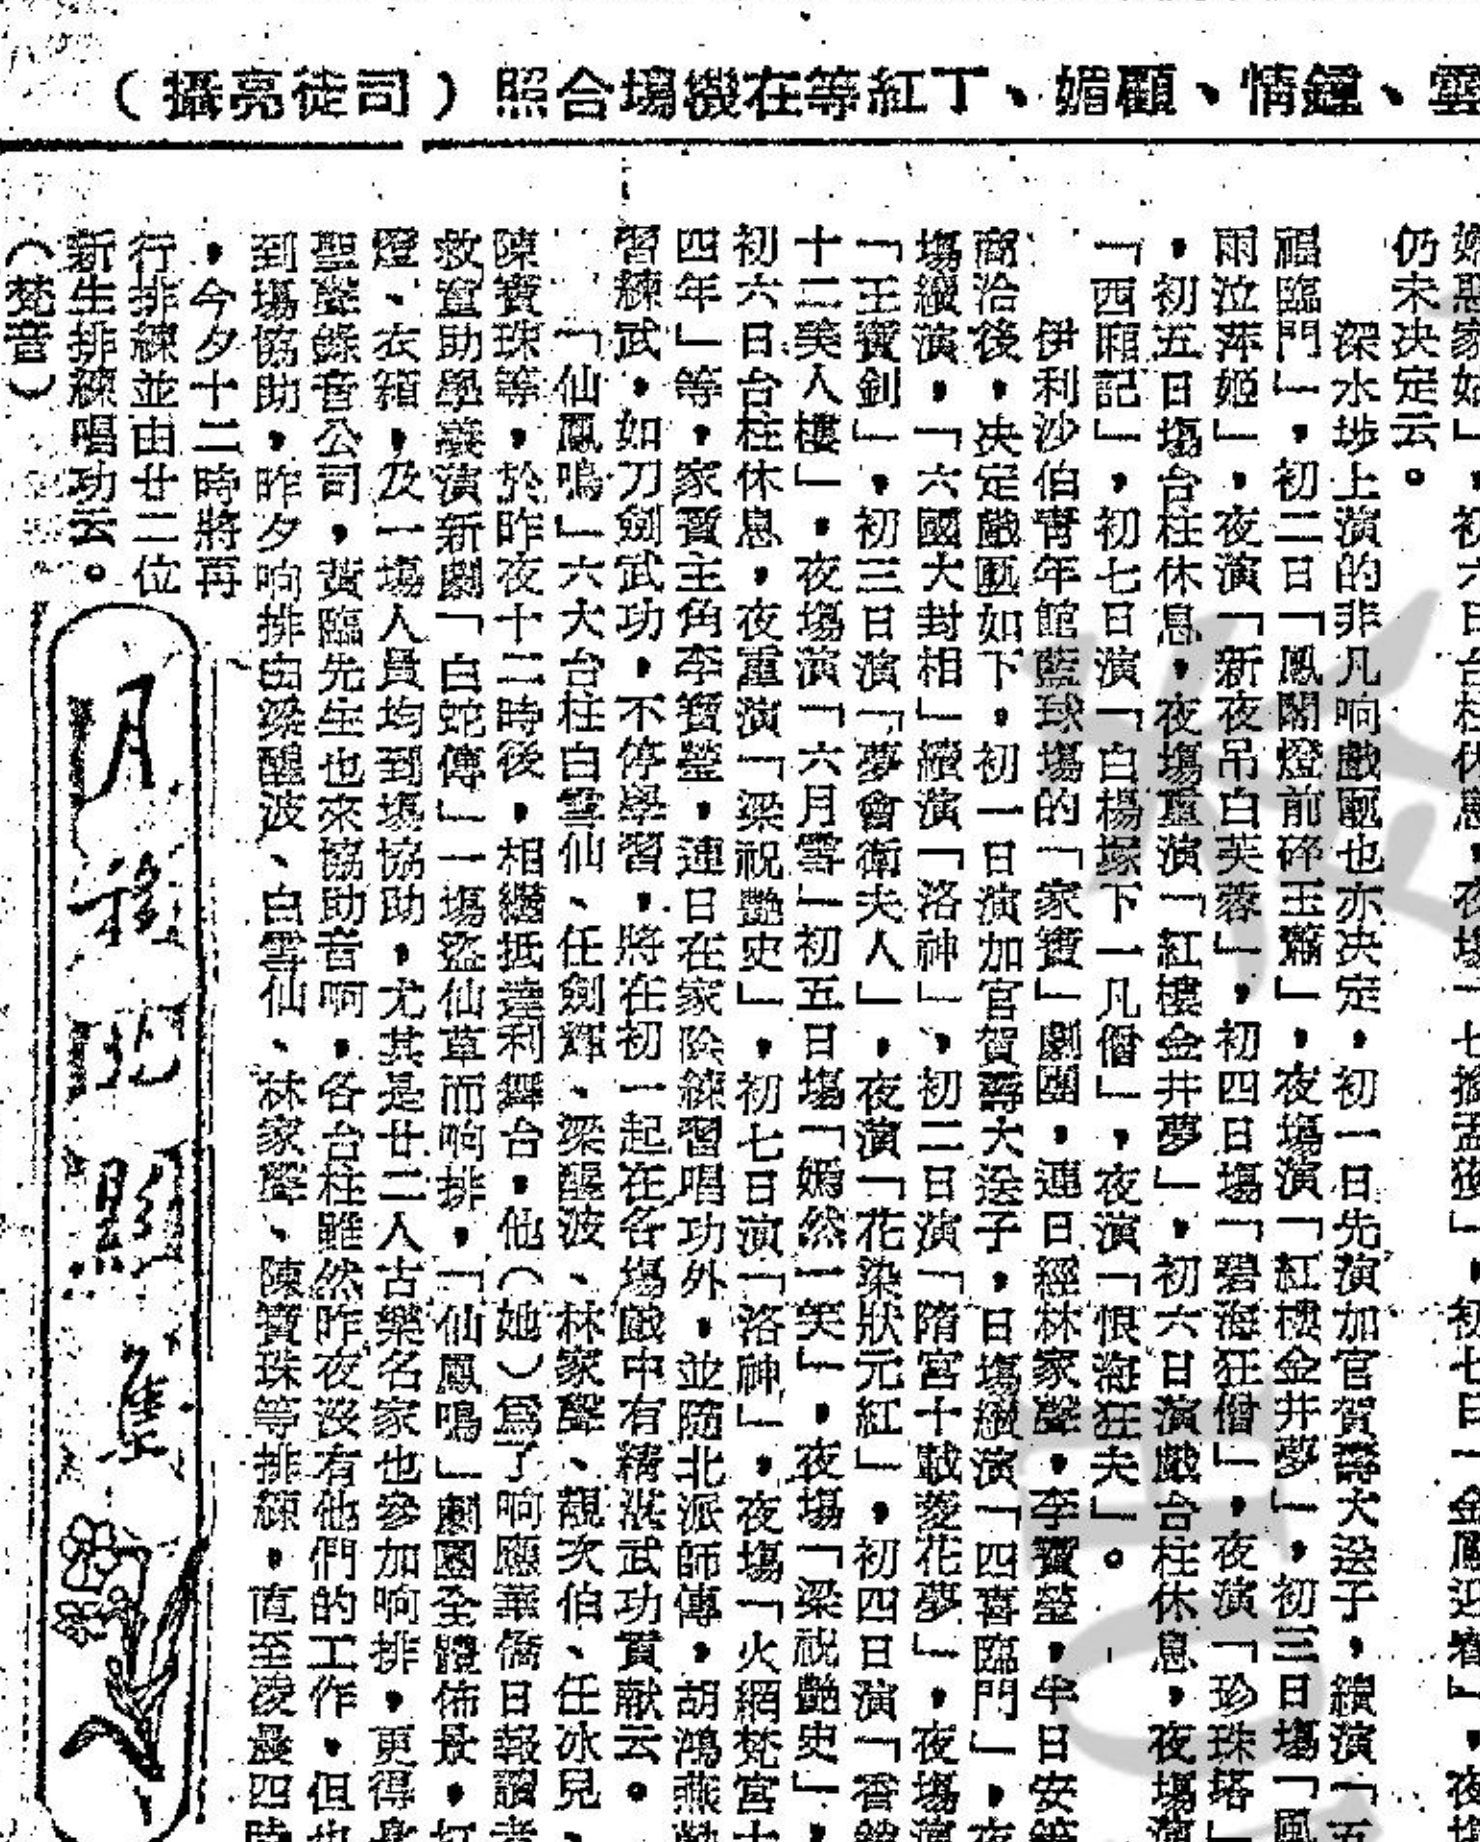 雲、鍾情、顧媚、丁紅等在機場合照(司徒亮攝)
家姑」，初六日台柱休息，夜場「七擒孟獲」，初七日「金鳳迎春」，夜
仍未决定云。
深水埗上演的非凡响戲匭也亦决定，初一日先演加官賀壽大送子，續演「五
福臨門」，初二日「鳳閣燈前碎玉簫」，夜場演「紅樓金井夢」，初三日場「風
雨泣萍姬」，夜演「新夜吊白芙蓉」，初四日場「碧海狂僧」，夜演「珍珠塔」
，初五日場台柱休息，夜場重演「紅樓金井夢」，初六日演戲台柱休息，夜場演
「西廂記」，初七日演「白楊塚下一凡僧」，夜演「恨海狂夫」。
伊利沙伯青年館藍球場的「家寶」劇團，連日經林家聲，李寶瑩，半日安等
商洽後，决定戲匭如下。初一日演加官賀壽大送子，日場續演「四喜臨門」，夜
場續演，「六國大封相」續演「洛神」，初二日演「隋宮十載菱花夢」，夜場演
「王寶釧」，初三日演「夢會衛夫人」，夜演「花染狀元紅」，初四日演「香
十二美人樓」，夜場演「六月雪」初五日場「嫣然一笑」，夜場「梁祝艷史」，
初六日台柱休息，夜重演「梁祝艷史」，初七日演「洛神」，夜場「火網梵宮十
四年」等，家寶主角李寶瑩，連日在家除練習唱功外，並隨北派師傅，胡鴻燕
習練武，如刀劍武功，不停學習，將在初一起在各場戲中有精湛武功貢献云。
「仙鳳鳴」六大台柱白雪仙、任劍輝、梁醒波、林家聲、靚次伯、任冰兒、
陳寶珠等，於昨夜十二時後，相繼抵達利舞台，他(她)爲了响應華僑日報讀者
救童助學義演新劇「白蛇傳」一場盜仙草而响排，「仙鳳鳴」劇團全體佈景，
燈、衣箱，及一場人員均到場協助，尤其是廿二人古樂名家也參加响排，更得
聖聲錄音公司，黃臨先生也來協助音响，各台柱雖然昨夜沒有他們的工作，但也
到場協助，昨夕响排由梁醒波、白雪仙、林家聲、陳寶珠等排練，直至凌晨四時
，今夕十二時將再
行排練並由廿二位
新生排練唱功云。
(梵音)
月移西影集